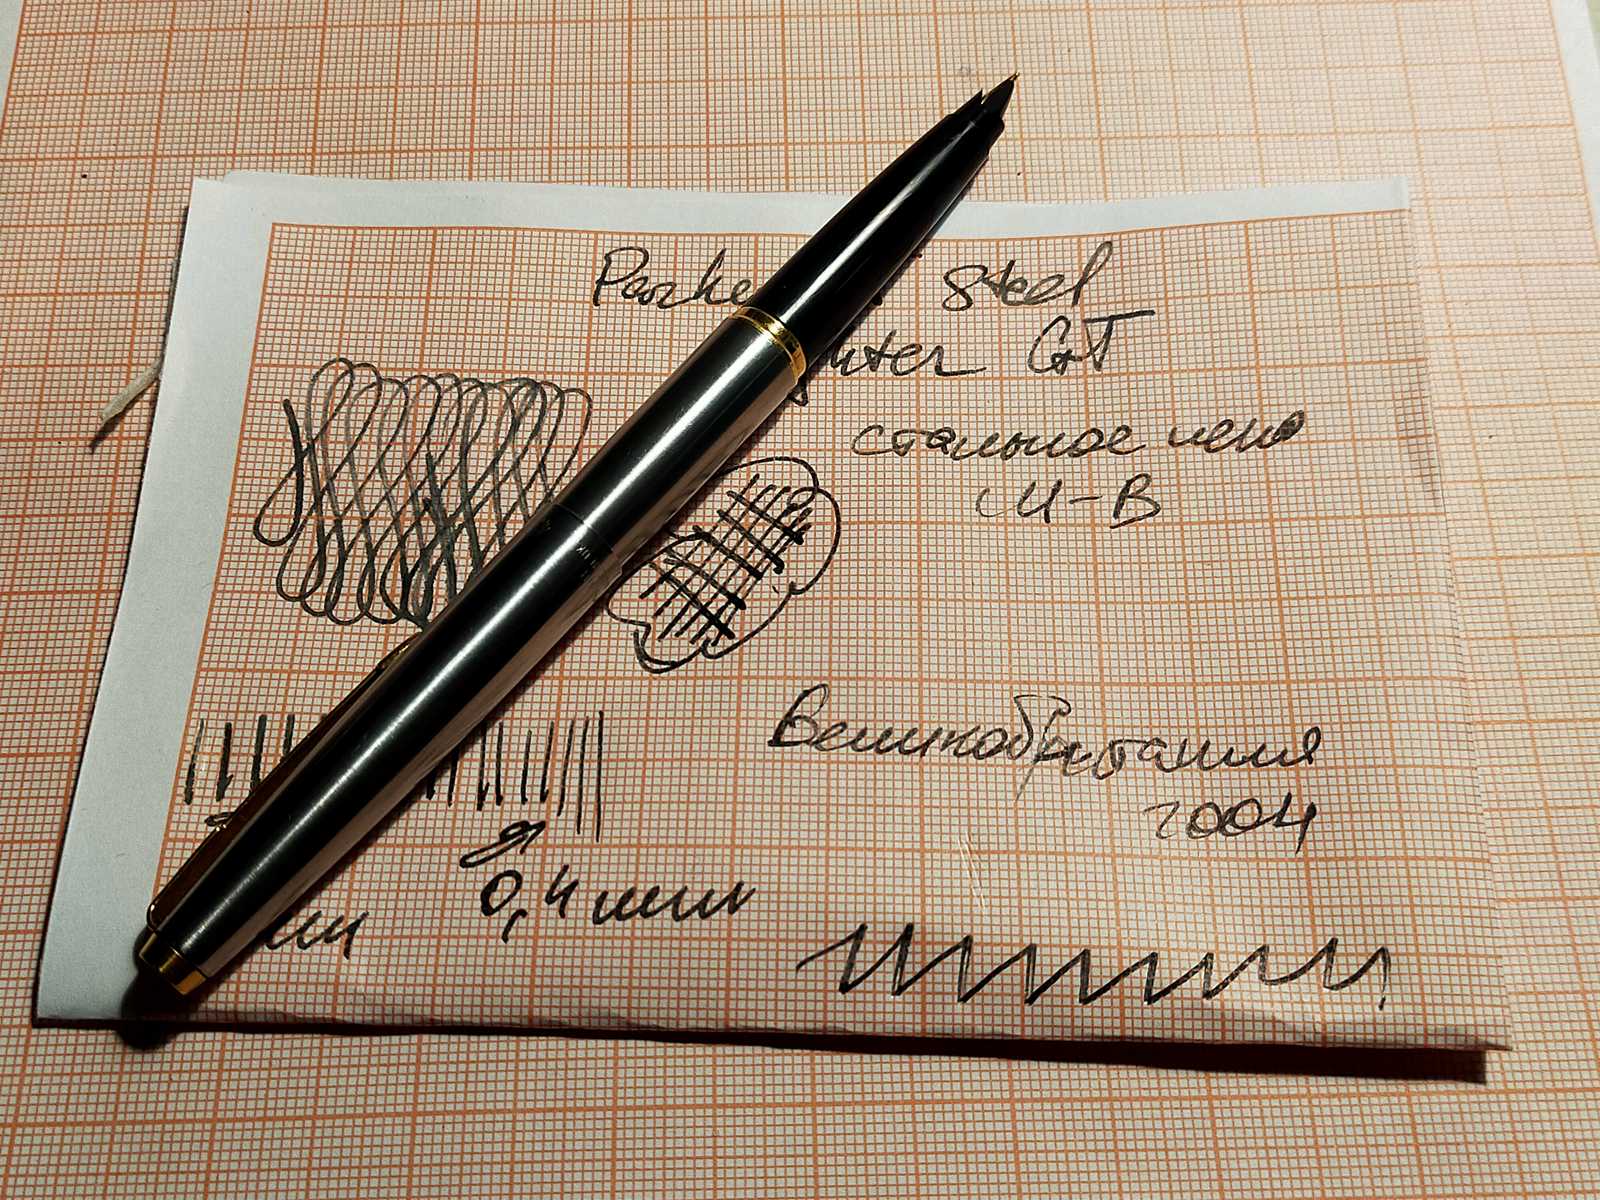 Parke steel
hter GT
стальное перо
M-B
Великобритания
2004
0,4 мм
мм